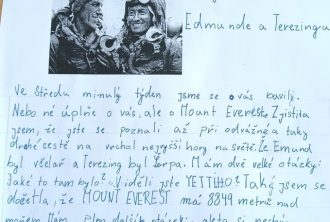 Edmunde a Terezingu
Ve Středu minulý týden jsme se o vás bavily.
Nebo né úplňe o vás, ale o MOUNT EVEREST. Zjistila
jsem, že jste se poznali až při odvážné a taky
druhé cestě na vrchol nejvyšší hory na světě. Že Emund
byl včelař a Terezing byl šerpa. Mám dvě velké otázky:
Jaké to tam bylo? Viděli jste YETTIHO? Také jsem se
dočetla, že MOUNT EVEREST má 8849 metrů nad
mořem. Mám plno dalších otázek, ale to si nechám